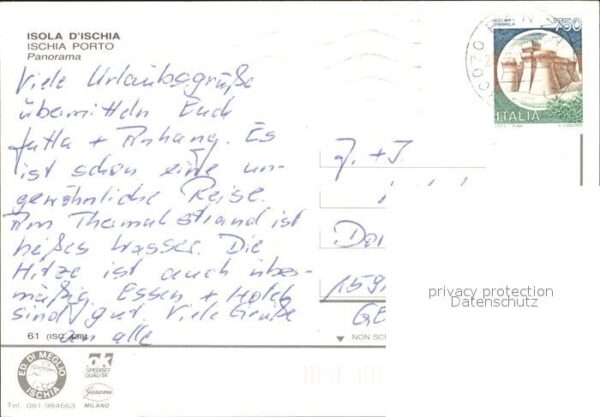 ISOLA D'ISCHIA
ISCHIA PORTO
Panorama
Viele Urlaubsgrüße
übermitteln Euch
Jutta + Anhang. Es
ist schon eine un-
gewöhnliche Reise.
Am Thermalstrand ist
heißes Wasser. Die
Hitze ist auch über-
mäßig. Essen + Hotel
sind gut. Viele Grüße
an alle
61 (ISC
ED. DI MEGLIO
ISCHIA
Tel. 081 984663
OK
SPEDISCI
QUALITÀ
Garami
MILANO
750
ITALIA
J. + J.
Dor
159
GE
NON SC
privacy protection
Datenschutz